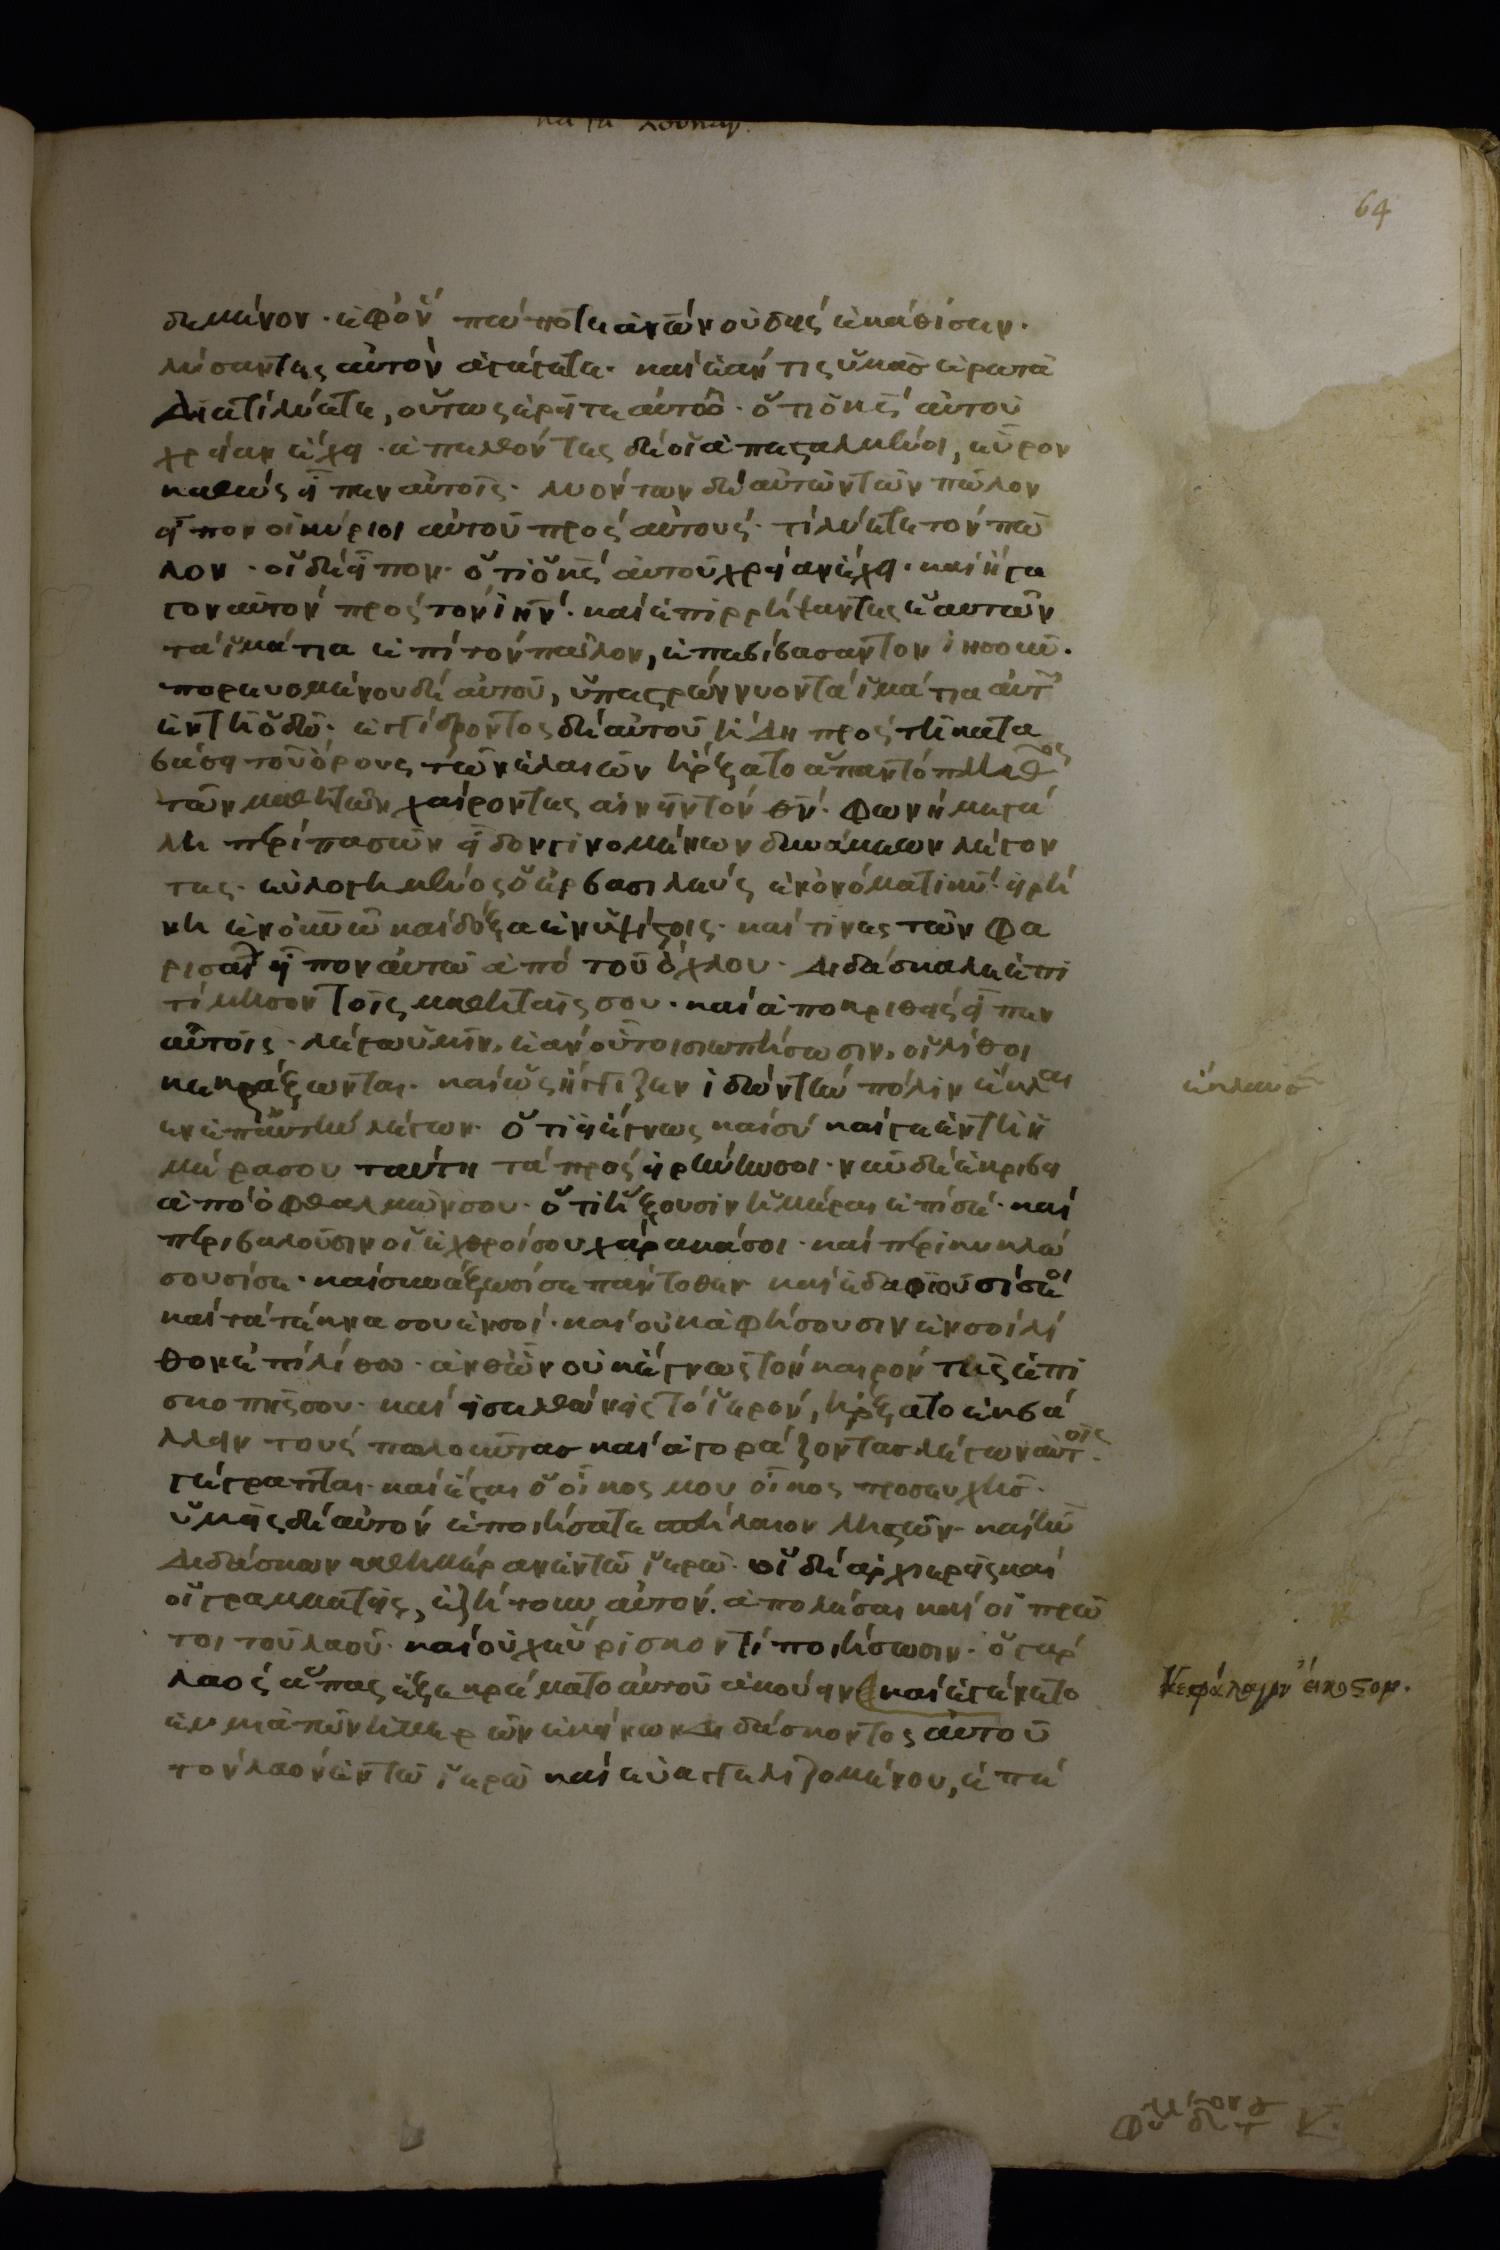 κατα λουκαν.
64
δεμένον· ἐφ ὃν πώποτε ἀν̅ω̅ν οὐδεὶς ἐκάθισεν·
λύσαντες αὐτὸν ἀγάγετε· καὶ ἐάν τις ὑμᾶς ἐρωτᾶ
διατί λύετε, οὕτως ἐρεῖτε αὐτῶ· ὅτι ὁ κ̅ς̅ αὐτοῦ
χρείαν ἔχει· ἀπελθόντες δὲ οἱ ἀπεσταλμένοι, εὗρον
καθὼς εἶπεν αὐτοῖς· λυόντων δὲ αὐτῶν τῶν πῶλον
εἶπον οἱ κύριοι αὐτοῦ πρὸς αὐτούς· τί λύετε τὸν πῶ
λον· οἱ δὲ εἶπον· ὅτι ὁ κ̅ς̅ αὐτοῦ χρείαν ἔχει· καὶ ἤγα
γον αὐτὸν πρὸς τὸν ι̅ν̅· καὶ ἐπιρρίψαντες ἑαυτῶν
τὰ ἱμάτια ἐπὶ τὸν πῶλον, ἐπεβίβασαν τὸν ἰησοῦν·
πορευομένου δὲ αὐτοῦ, ὑπεστρώννυον τὰ ἱμάτια αὐτ
ἐν τῆ ὁδῶ· ἐγγίζοντος δὲ αὐτοῦ ἤδη πρὸς τῆ κατα
βάσει τοῦ ὄρους τῶν ἐλαιῶν ἤρξατο ἅπαν τὸ πλῆθος
τῶν μαθητῶν χαίροντες αἰνεῖν τὸν θ̅ν̅· φωνῆ μεγά
λη περὶ πασῶν εἶδον γινομένων δυνάμεων λέγον
τες· εὐλογημένος ὁ ἐρ βασιλεὺς ἐν ὀνόματι κ̅υ̅· εἰρή
νη ἐν ὀυ̅ν̅ω̅ καὶ δόξα ἐν ὑψίστοις· καί τινες τῶν φα
ρισαί εἶπον αὐτῶ ἀπὸ τοῦ ὄχλου· διδάσκαλε ἐπι
τίμησον τοῖς μαθηταῖς σου· καὶ ἀποκριθεὶς εἶπεν
αὐτοῖς· λέγω ὑμῖν, ἐὰν οὗτοι σιωπήσωσιν, οἱ λίθοι
κεκράξωνται· καὶ ὡς ἤγγιζεν ἰδὼν τὴν πόλιν ἔκλαι
εν ἐπ αὐτὴν λέγων· ὅτι εἰ ἔγνως καὶ σὺ καίγε ἐν τῆ ἡ
μέρα σου ταύτη τὰ πρὸς εἰρήνην σοι· νῦν δὲ ἐκρίβη
ἀπὸ ὀφθαλμῶν σου· ὅτι ἥξουσιν ἡμέραι ἐπὶ σέ· καὶ
περιβαλοῦσιν οἱ ἐχθροί σου χάρακά σοι· καὶ περικυκλώ
σουσί σε· καὶ συνέξωσί σε πάντοθεν καὶ ἐδαφιοῦσί σε
καὶ τὰ τέκνα σου ἐν σοί· καὶ οὐκ ἀφήσουσιν ἐν σοὶ λί
θον ἐπὶ λίθω· ἀνθ ὧν οὐκ ἔγνως τὸν καιρὸν τῆς ἐπι
σκοπῆς σου· καὶ εἰσελθὼν εἰς τὸ ἱερόν, ἤρξατο ἐκβά
λλειν τοὺς πωλοῦντας καὶ ἀγοράζοντας λέγων αὐτοῖς·
γέγραπται· καὶ ἔσται ὁ οἶκος μου οἶκος προσευχῆς·
ὑμεῖς δὲ αὐτὸν ἐποιήσατε σπήλαιον ληστῶν· καὶ ἦν
διδάσκων καθ ἡμέραν ἐν τῶ ἱερῶ· οἱ δὲ ἀρχιερεῖς καὶ
οἱ γραμματεῖς, ἐζήτουν αὐτὸν, ἀπολέσαι καὶ οἱ πρῶ
τοι τοῦ λαοῦ· καὶ οὐχ εὕρισκον τί ποιήσωσιν· ὁ γὰρ
λαὸς ἅπας ἐξεκρέματο αὐτοῦ ἀκούειν (καὶ ἐγένετο
ἐν μιᾶ τῶν ἡμερῶν ἐκείνων διδάσκοντος αὐτοῦ
τὸν λαὸν ἐν τῶ ἱερῶ καὶ εὐαγγελιζομένου, ἐπέ
ἔκλαυσ
Κεφάλαιον εἰκοστον.